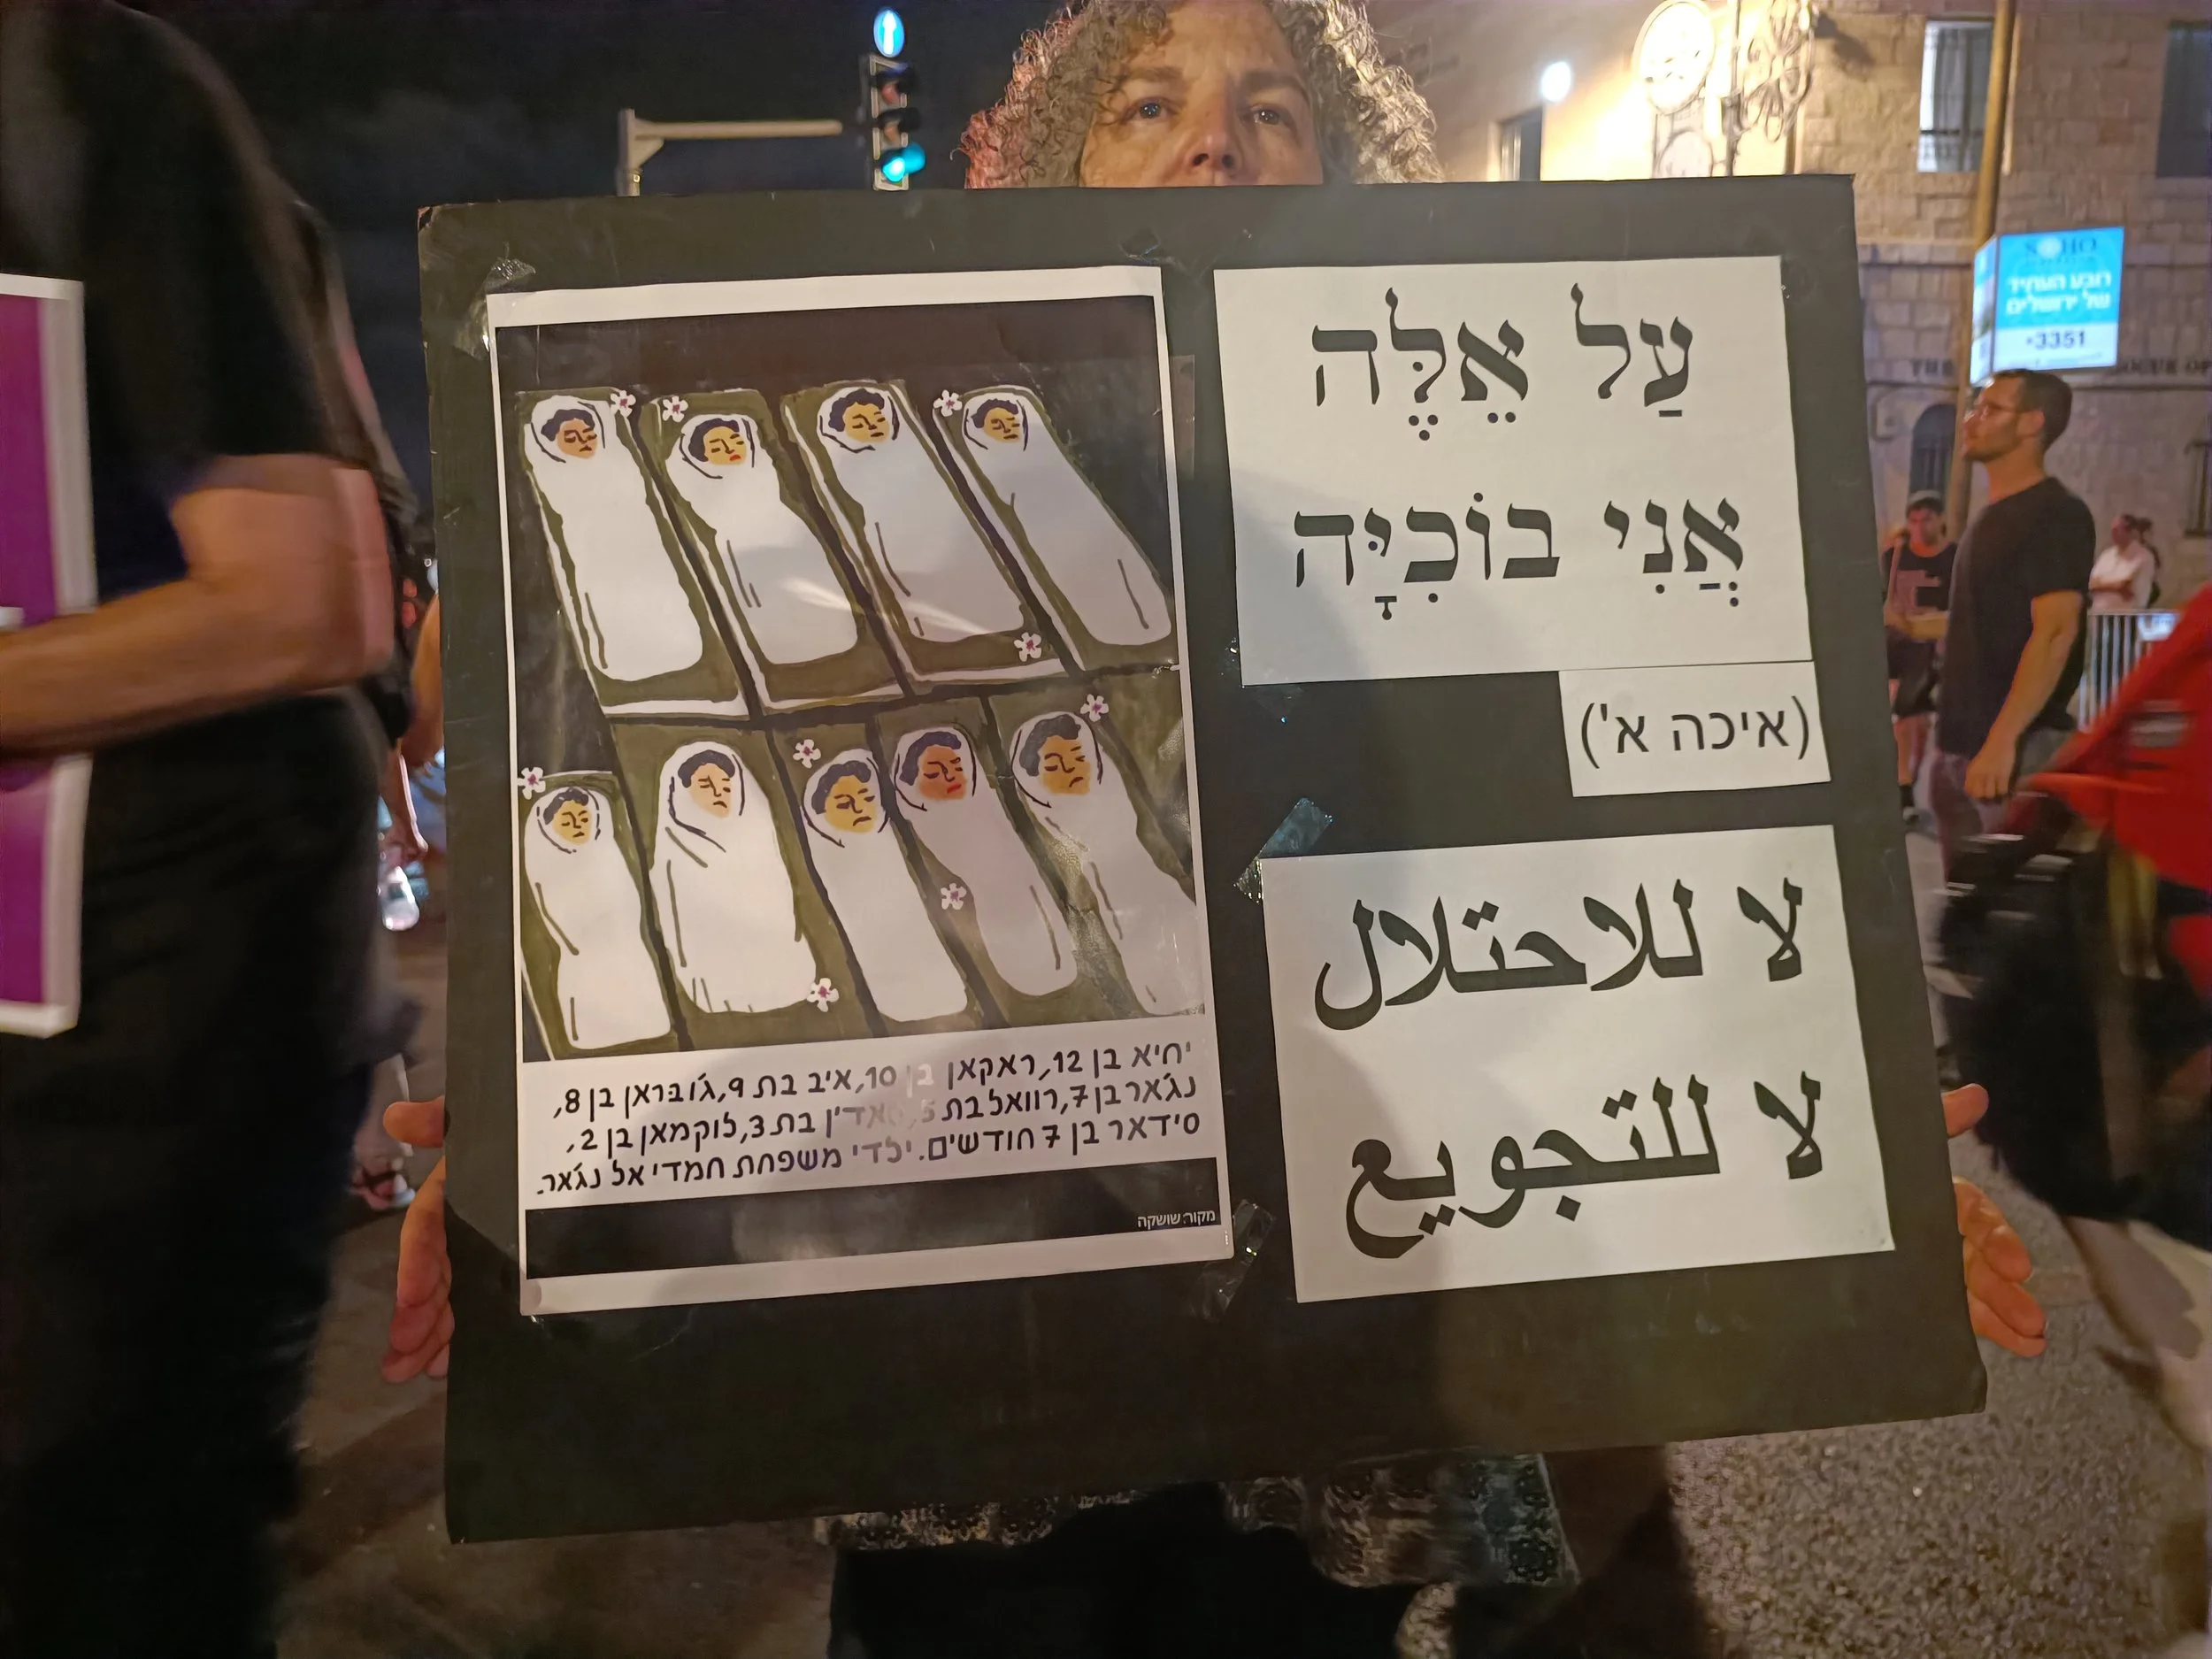 עַל אֵלֶּה
אֲנִי בוֹכִיָּה
(איכה א')
لا للاحتلال
لا للتجويع
יחיא בן 12, ראקאן בן 10, איב בת 9, ג'ובראן בן 8,
נג'אר בן 7, רוואל בת 5, סאדין בת 3, לוקמאן בן 2,
סידאר בן 7 חודשים. ילדי משפחת חמדי אל נג'אר.
מקור: שושקה
SOHO
רובע העתיד
של ירושלים
*3351
THE
OGUE OF